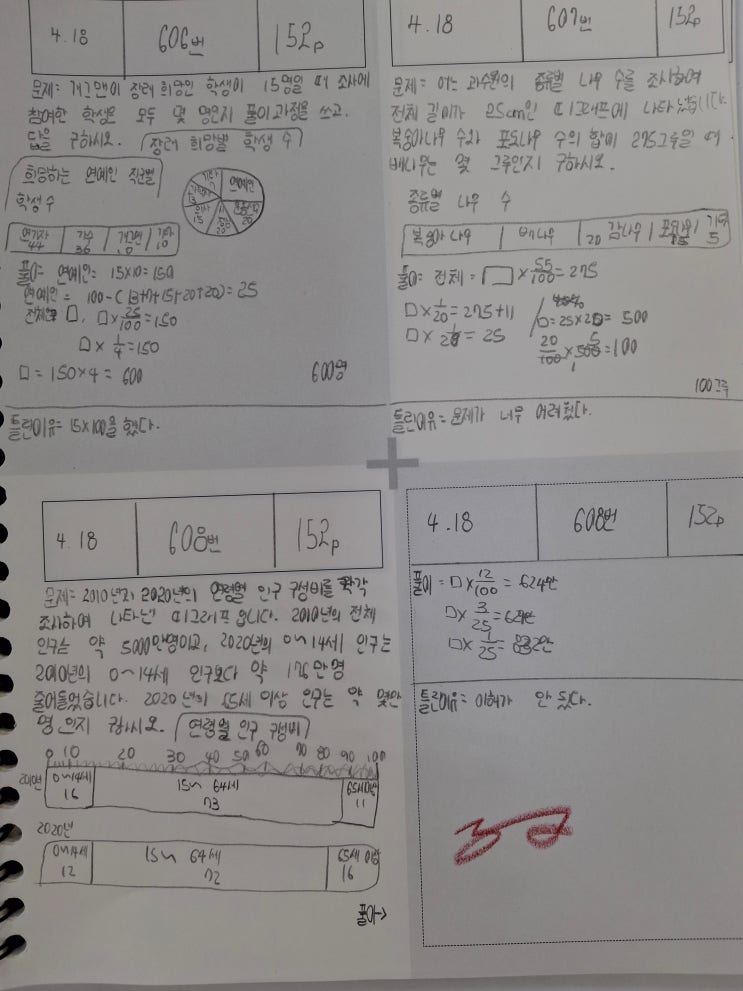 4.18 606번 152p
문제= 개그맨이 장래 희망인 학생이 15명일 때 조사에
참여한 학생은 모두 몇 명인지 풀이 과정을 쓰고,
답을 구하시오. 장래 희망별 학생 수
희망하는 연예인 직업별
학생 수
기타
연예인
운동선수
20
20
의사
15
13
연기자 가수 개그맨 기타
44 36 10 10
풀이= 연예인= 15×10=150
연예인 = 100-(13+7+15+20+20)=25
전체= □, □×25/100=150
□×1/4=150
□=150×4=600
600명
틀린이유= 15×100을 했다.
4.18 607번 152p
문제= 어느 과수원의 종류별 나무 수를 조사하여
전체 길이가 25cm인 띠그래프에 나타냈습니다.
복숭아나무 수와 포도나무 수의 합이 275그루일 때
배나무는 몇 그루인지 구하시오.
종류별 나무 수
복숭아 나무 배나무 20 감나무 포도나무 15 기타 5
풀이= 전체= □×55/100=275
□×1/20=275÷11
□×1/20=25
□=25×20=500
20/100×500=100
100그루
틀린이유= 문제가 너무 어려웠다.
4.18 608번 152p
문제= 2010년과 2020년의 연령별 인구 구성비를 각각
조사하여 나타낸 띠그래프입니다. 2010년의 전체
인구는 약 5000만명이고, 2020년의 0~14세 인구는
2010년의 0~14세 인구보다 약 176만명
줄어들었습니다. 2020년의 65세 이상 인구는 약 몇만
명 인지 구하시오. 연령별 인구 구성비
0 10 20 30 40 50 60 70 80 90 100
2010년 0~14세 15~64세 65세이상
16 73 11
2020년
0~14세 15~64세 65세 이상
12 72 16
풀이→
4.18 608번 152p
풀이= □×12/100=624만
□×3/25=624만
□×1/25=
틀린이유= 이해가 안 됐다.